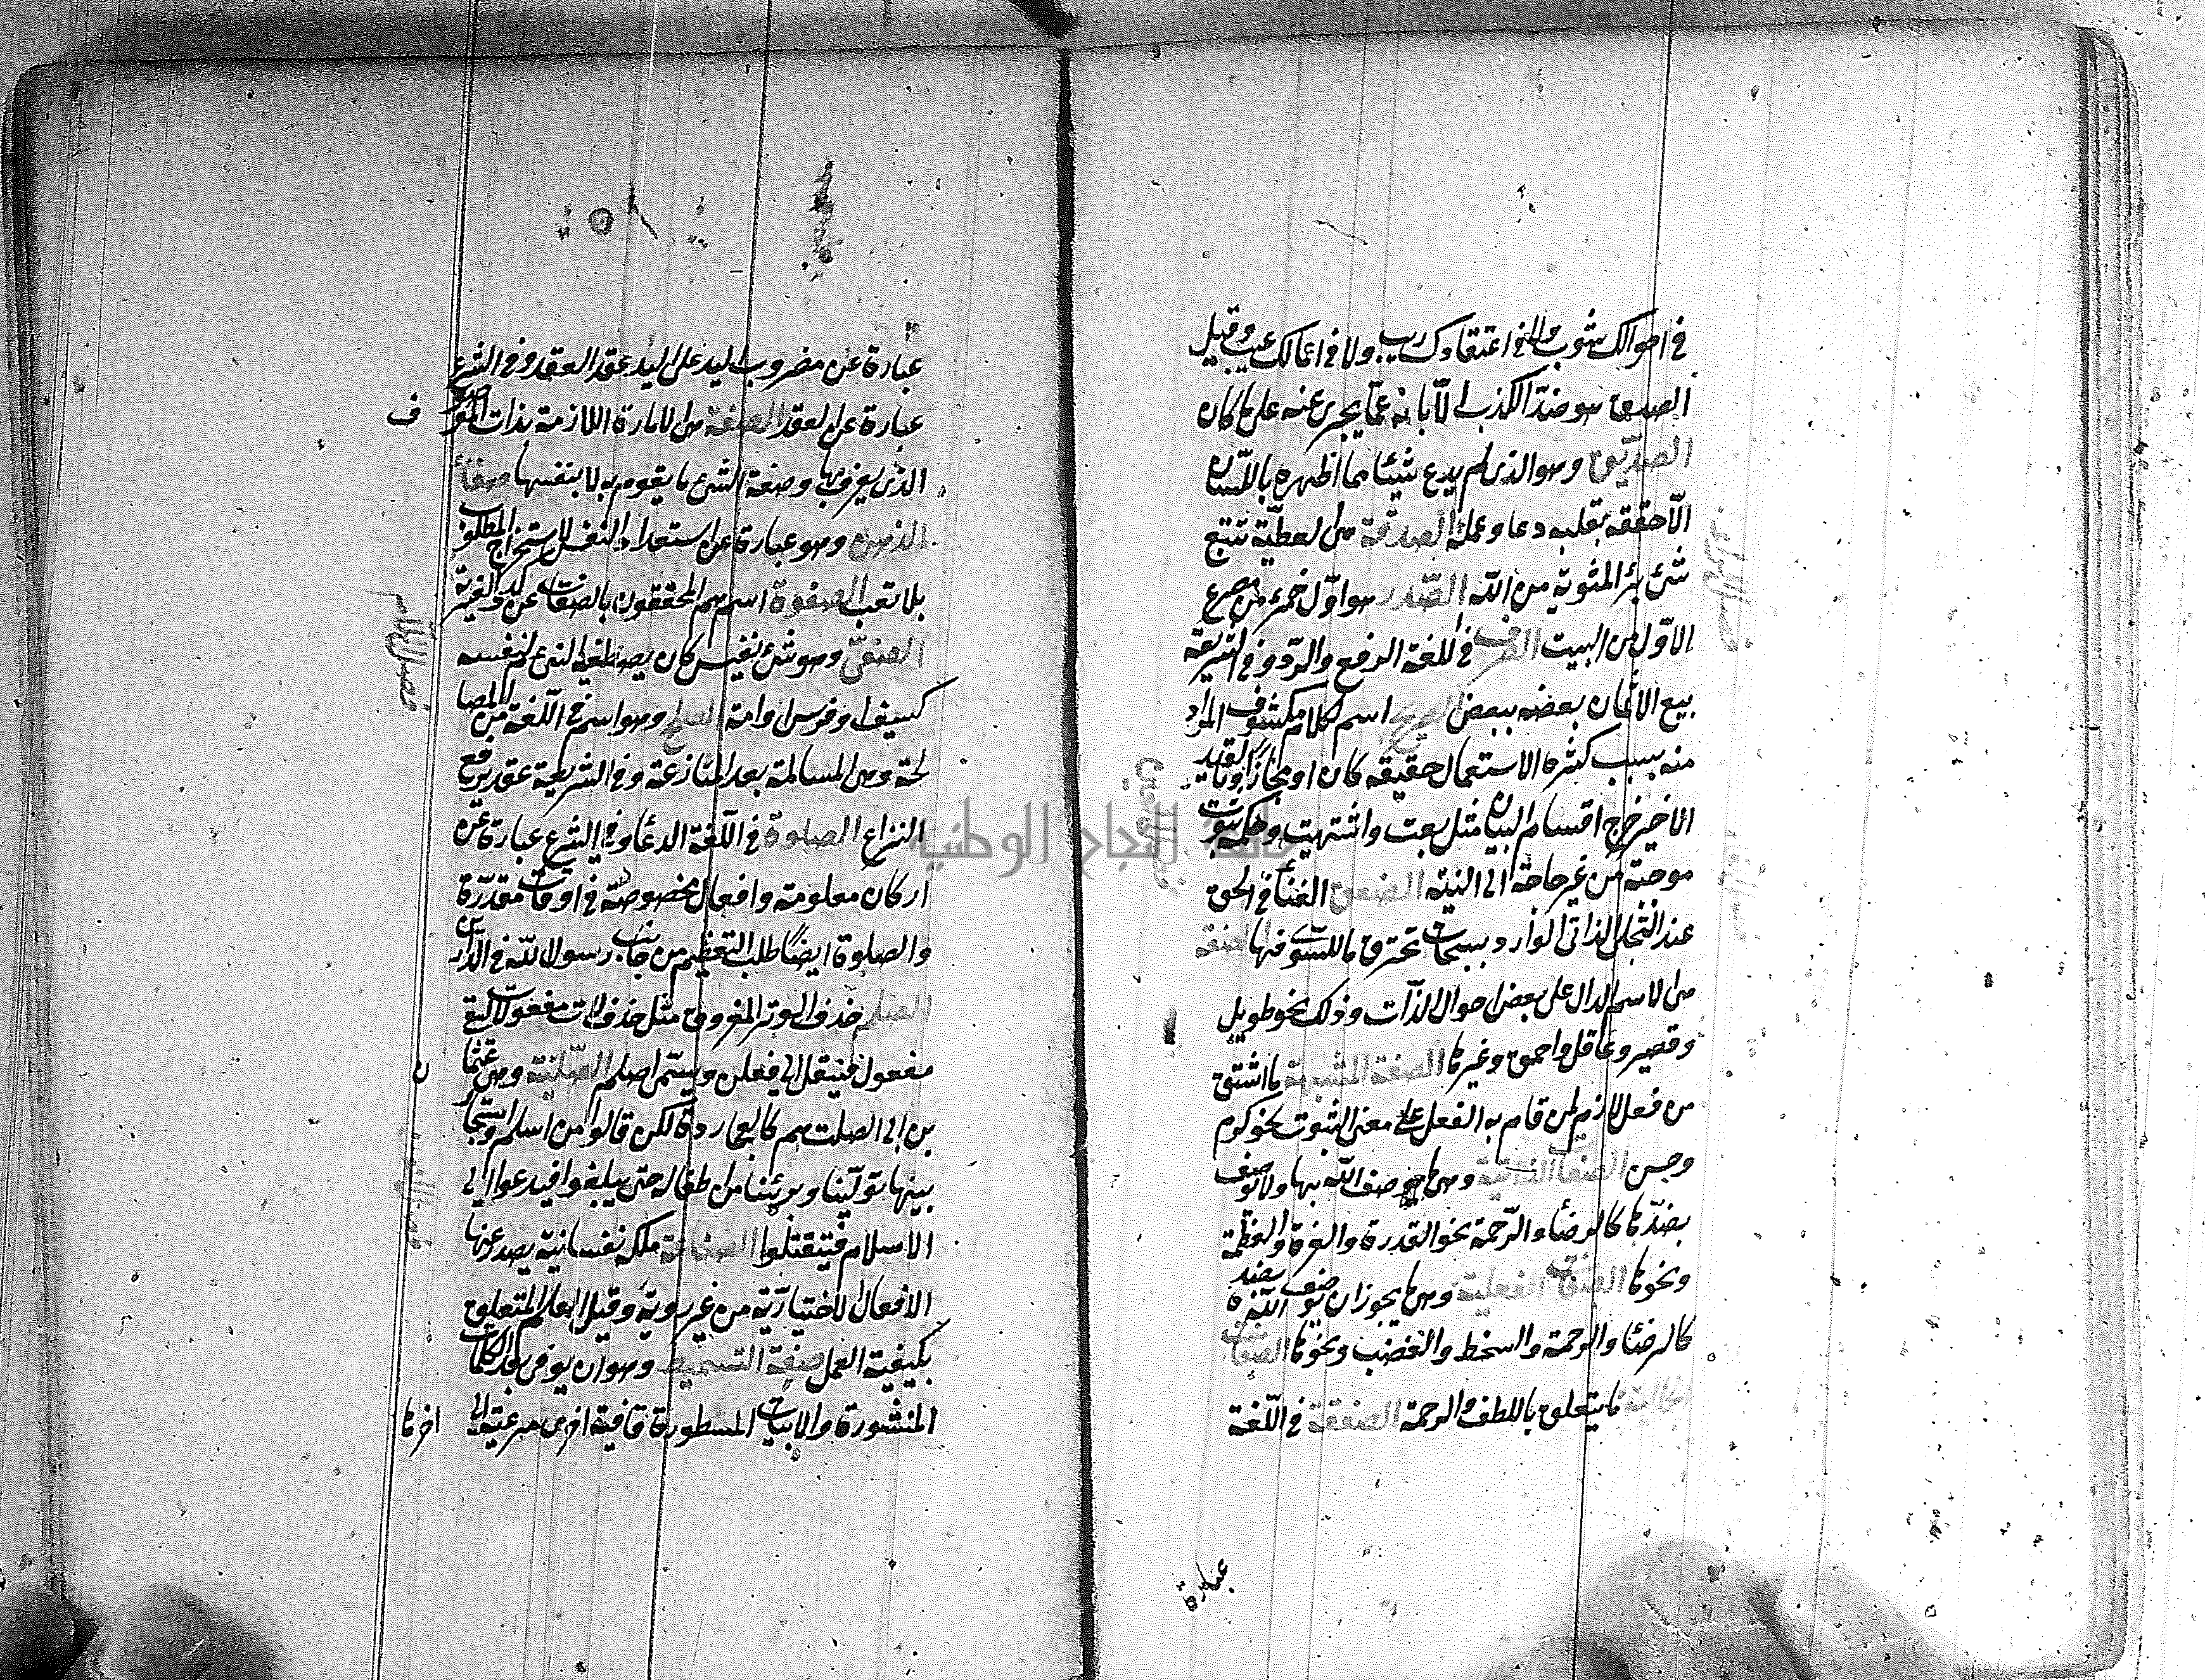 في احوالك شوب ولا في اعتقادك ريب ولا في اعمالك عيب وقيل
الصدق هو ضد الكذب الابانة عما يخبر عنه على ما كان
الصديق وهو الذي لم يدع شيئا مما اظهره باللسان
الا حققه بقلبه وعمله الصدقة هي العطية تبتغي
المثوبة من الله الصدر هو اول جزء من مصرع
الاول من البيت الصرف في اللغة الرفع والرد وفي الشريعة
بيع الاثمان بعضه ببعض الصريح اسم لكلام مكشوف المراد
منه بسبب كثرة الاستعمال حقيقة كان او مجازا وبالقيد
الاخير خرج اقسام البيان مثل بعت واشتريت
من غير حاجة الى النية الصعق الفناء في الحق
عند التجلي الذاتي الوارد بسبحات تحترق ما للسوى فيها الصفة
هي الاسم الدال على بعض احوال الذات وذلك نحو طويل
وقصير وعاقل واحمق وغيرها الصفة المشبهة ما اشتق
من فعل لازم لمن قام به الفعل على معنى الثبوت نحو كريم
وحسن الصفات الذاتية وهي ما يوصف الله بها ولا يوصف
بضدها نحو القدرة والعزة والعظمة
ونحوها الصفات الفعلية وهي ما يجوز ان يوصف الله بضده
كالرضا والرحمة والسخط والغضب ونحوها الصفات
الجمالية ما يتعلق باللطف والرحمة الصفقة في اللغة
عبارة
عبارة عن ضرب اليد على اليد عند العقد وفي الشرع
عبارة عن العقد الصفة هي الامارة اللازمة بذات الموصوف
الذي يعرف بها وصفة الشيء ما يقوم به لا بنفسها صفاء
الذهن وهو عبارة عن استعداد النفس لاستخراج المطلوب
بلا تعب الصفوة اسم هم المحققون بالصفات عن كدر الغيرية
الصفي وهو شيء نفيس كان يصطفيه النبي لنفسه
كسيف او فرس او امة الصلح وهو اسم في اللغة من المصا
لحة وهي المسالمة بعد المنازعة وفي الشريعة عقد يرفع
النزاع الصلوة في اللغة الدعاء وفي الشرع عبارة عن
اركان معلومة وافعال مخصوصة في اوقات مقدرة
والصلوة ايضا طلب التعظيم من جانب رسول الله في الدارين
الصلم حذف الوتد المفروق مثل حذف لات من مفعولات ليبقى
مفعو فينقل الى فعلن ويسمى اصلم الصلتية وهي عثمان
بن ابي الصلت هم كالعجاردة لكن قالوا من اسلم واستجار
بنا توليناه وبرئنا من اطفاله حتى يبلغوا فيدعوا الى
الاسلام فيقتلوا الصناعة ملكة نفسانية يصدر عنها
الافعال الاختيارية من غير روية وقيل العلم المتعلق
بكيفية العمل صنعة التسميط وهو ان يؤتى بعد الكلمات
المنثورة والابيات المسطورة قافية اخرى مرعية الى اخرها
جامعة النجاح الوطنية